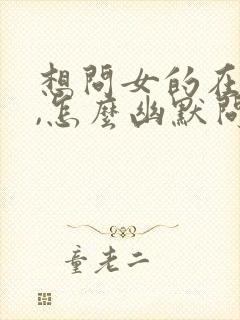 想問女的在
,怎麼幽默問
童老二